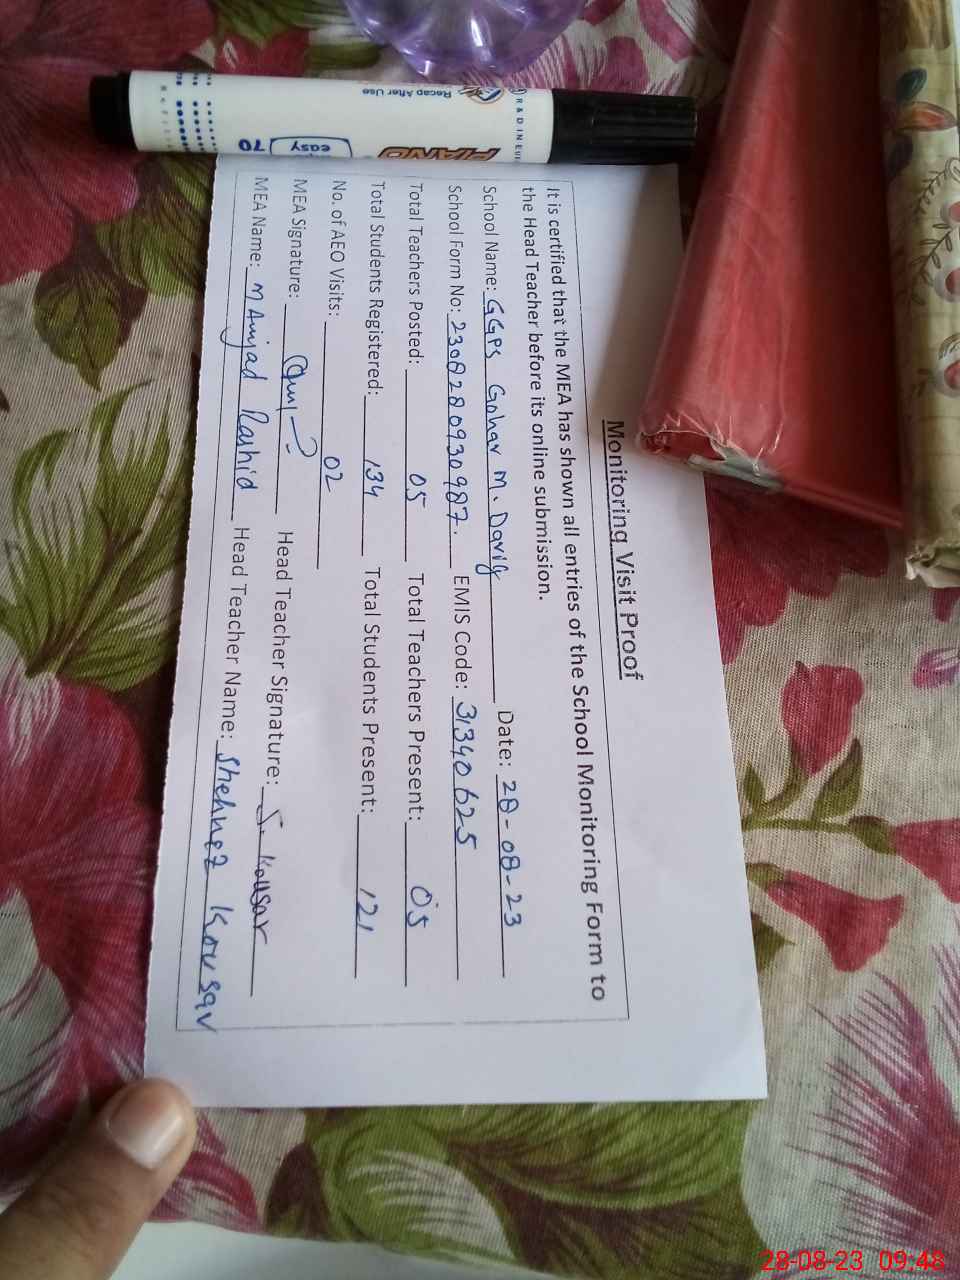 Monitoring Visit Proof
It is certified that the MEA has shown all entries of the School Monitoring Form to
the Head Teacher before its online submission.
School Name: GGPS Gohar M. Davig Date: 28-08-23
School Form No: 2308280930987. EMIS Code: 31340625
Total Teachers Posted: 05 Total Teachers Present: 05
Total Students Registered: 134 Total Students Present: 121
No. of AEO Visits: 02
MEA Signature: Head Teacher Signature: S. Kousar
MEA Name: M Amjad Rashid Head Teacher Name: Shehnez Kousar
Recap After Use
PIANO
easy
70
28-08-23 09:48